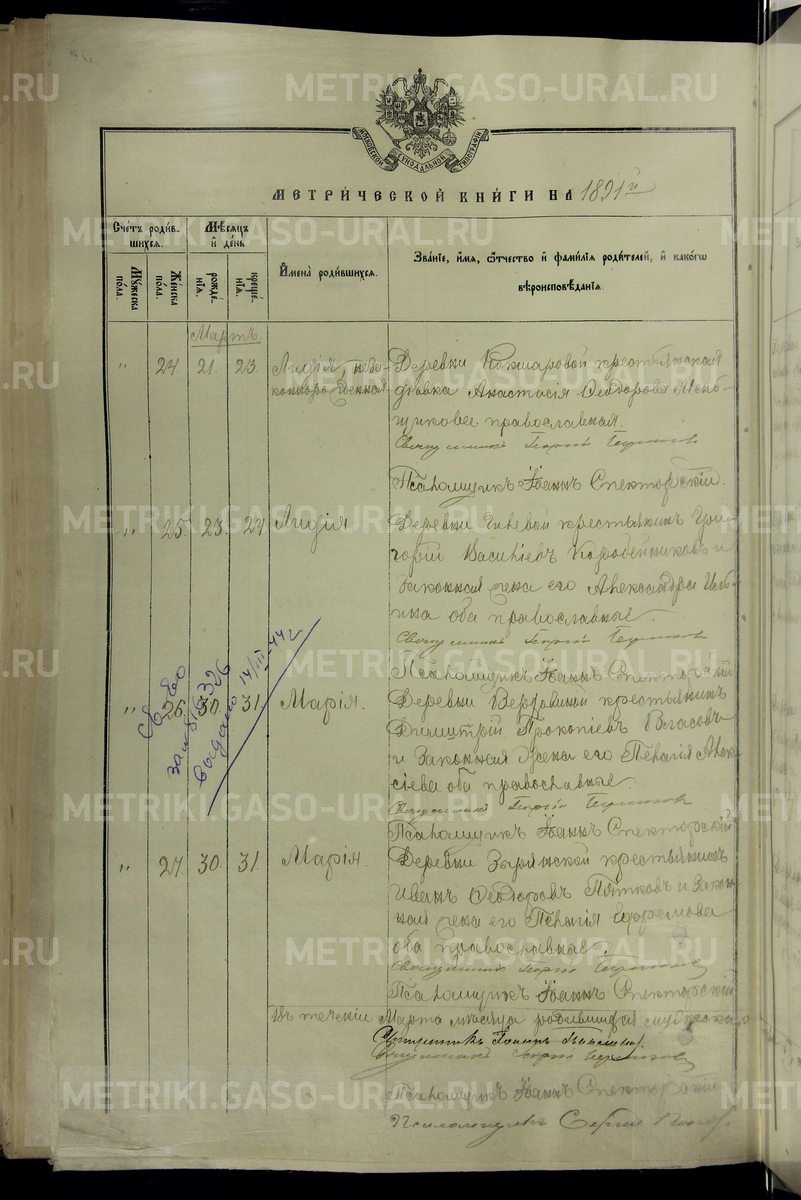 МОСКОВСКОЙ СѴНОДАЛЬНОЙ ТИПОГРАФІИ
МЕТРИ́ЧЕСКОЙ КНИ́ГИ НА 1891й
Сче́тъ роди́в-
шихсѧ.
Мꙋ́жеска
по́ла.
Же́нска
по́ла.
Мѣ́сѧцъ
и҆ де́нь
рожде́-
нїѧ.
креще́-
нїѧ.
И҆мена̀ роди́вшихсѧ.
Зва́нїе, и҆́мѧ, ѻ҆́тчество и҆ фами́лїѧ роди́телей, и҆ како́гѡ
вѣроисповѣ́данїѧ.
Мартъ.
" 24. 21. 23.
Лидія, неза-
коннорожденная
Деревни Кокшаровой крестьянская
дѣвка Анастасія Ѳеодорова Мень-
щикова православная.
Священникъ Георгій
Псаломщикъ Іоаннъ Спекторскій.
" 25. 23. 24 Лидія
Деревни крестьянинъ Гри-
горій Василіевъ Коробейниковъ и
Законная жена его Александра Иль-
ина оба православные.
Священникъ Георгій
Псаломщикъ Іоаннъ Спекторскій
" 26. 30. 31. Марія.
Деревни крестьянинъ
Димитрій Прокопіевъ Власовъ
и Законная жена его Пелагія Алек-
сіева оба православные.
Священникъ Георгій
Псаломщикъ Іоаннъ Спекторскій
Св-во
выдано 14/III-44г
" 27. 30. 31. Марія.
Деревни Зырянской крестьянинъ
Иванъ Ѳеодоровъ Пятковъ и Закон-
ная жена его Пелагія Ефремова
оба православные.
Священникъ Георгій
Псаломщикъ Іоаннъ Спекторскій
Въ теченіи Марта мѣсяца родившихся мужескаго
Священникъ Георгій
Псаломщикъ Іоаннъ Спекторскій
Псаломщикъ Сергій
METRIKI.GASO-URAL.RU